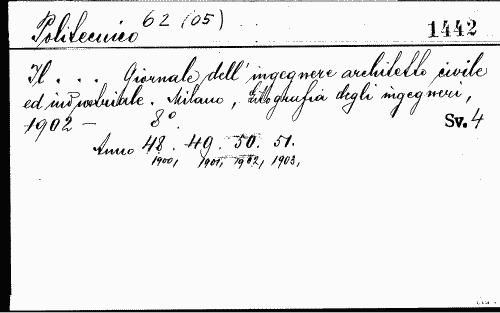 Politecnico 62 (05) 1442
Il . . . Giornale dell' ingegnere architetto civile
ed industriale. Milano, Litografia degli ingegneri,
1902 — 8° Sv. 4
Anno 48. 49. 50. 51.
1900, 1901, 1902, 1903,